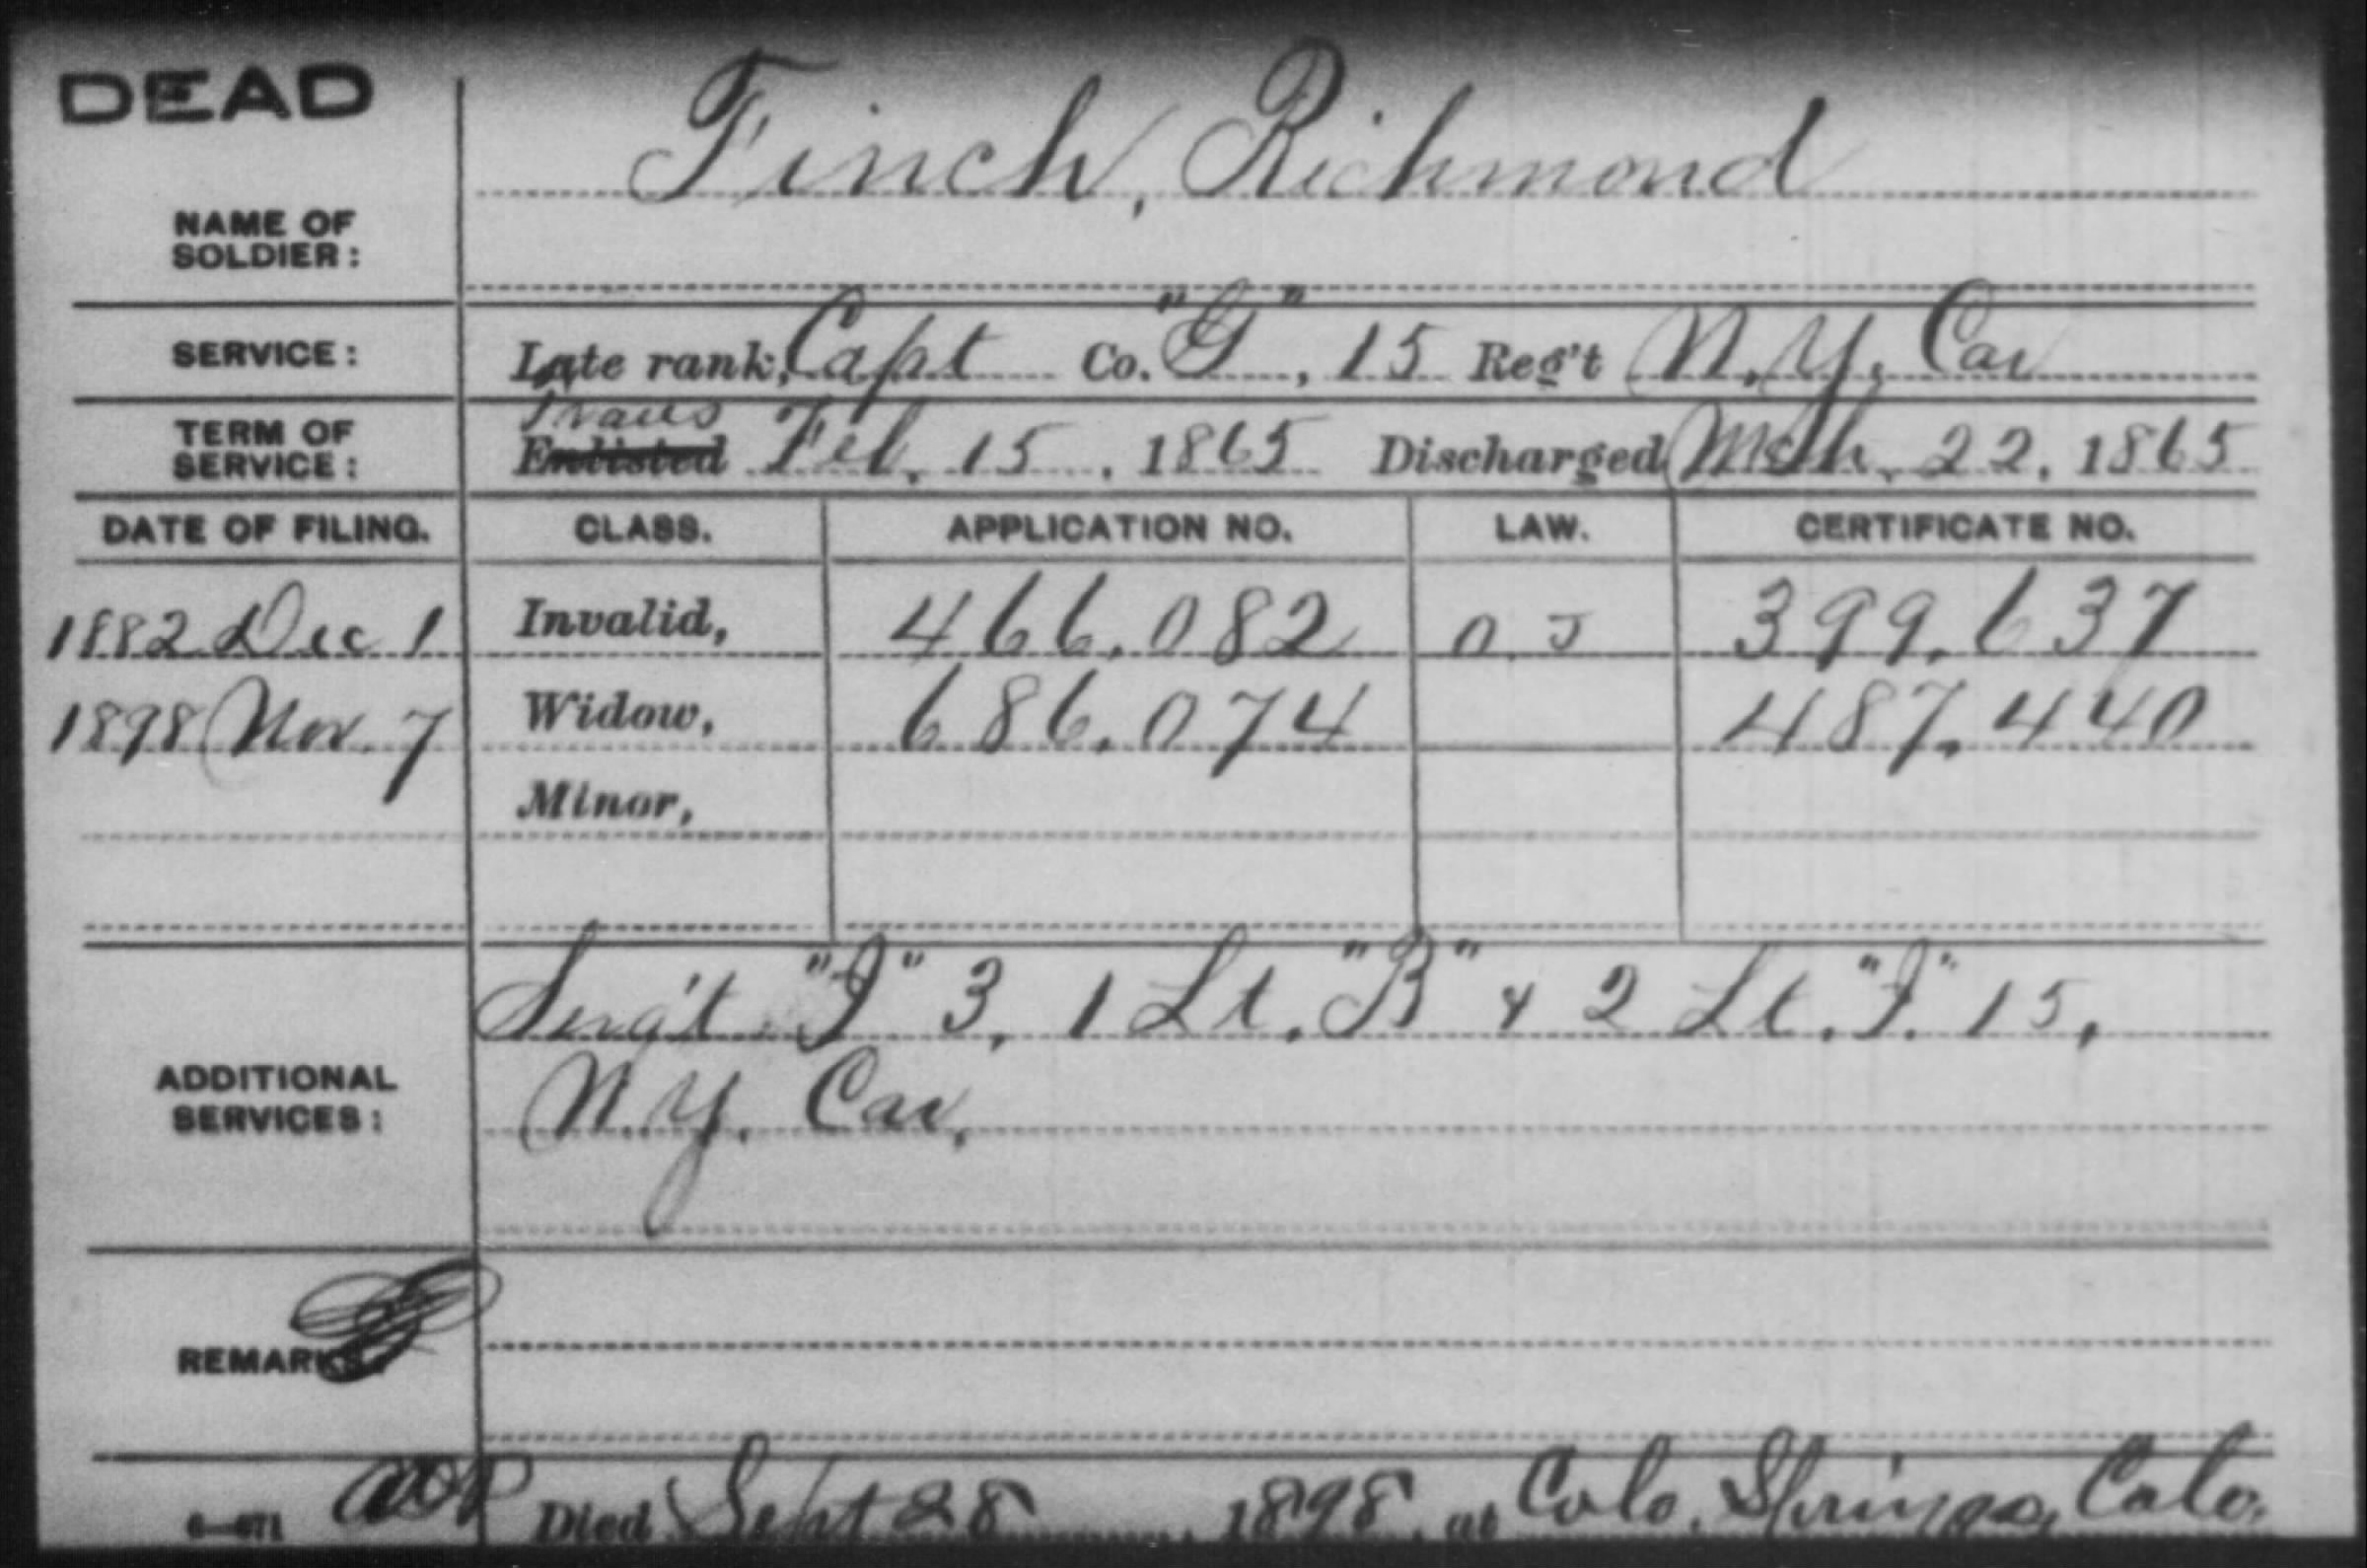 DEAD
Finch, Richmond
NAME OF
SOLDIER:
SERVICE: Late rank, Capt Co. "G", 15 Reg't N.Y. Cav
Trans
TERM OF
SERVICE: Enlisted Feb. 15, 1865 Discharged Mch. 22, 1865
DATE OF FILING. CLASS. APPLICATION NO. LAW. CERTIFICATE NO.
1882 Dec 1 Invalid, 466.082 399.637
1898 Nov. 7 Widow, 686.074 487.440
Minor,
Serg't "I" 3, 1 Lt. "B" & 2 Lt. "I" 15,
N.Y. Cav.
ADDITIONAL
SERVICES:
REMARKS:
6—671 Died Sept 28, 1898, at Colo. Springs, Colo.